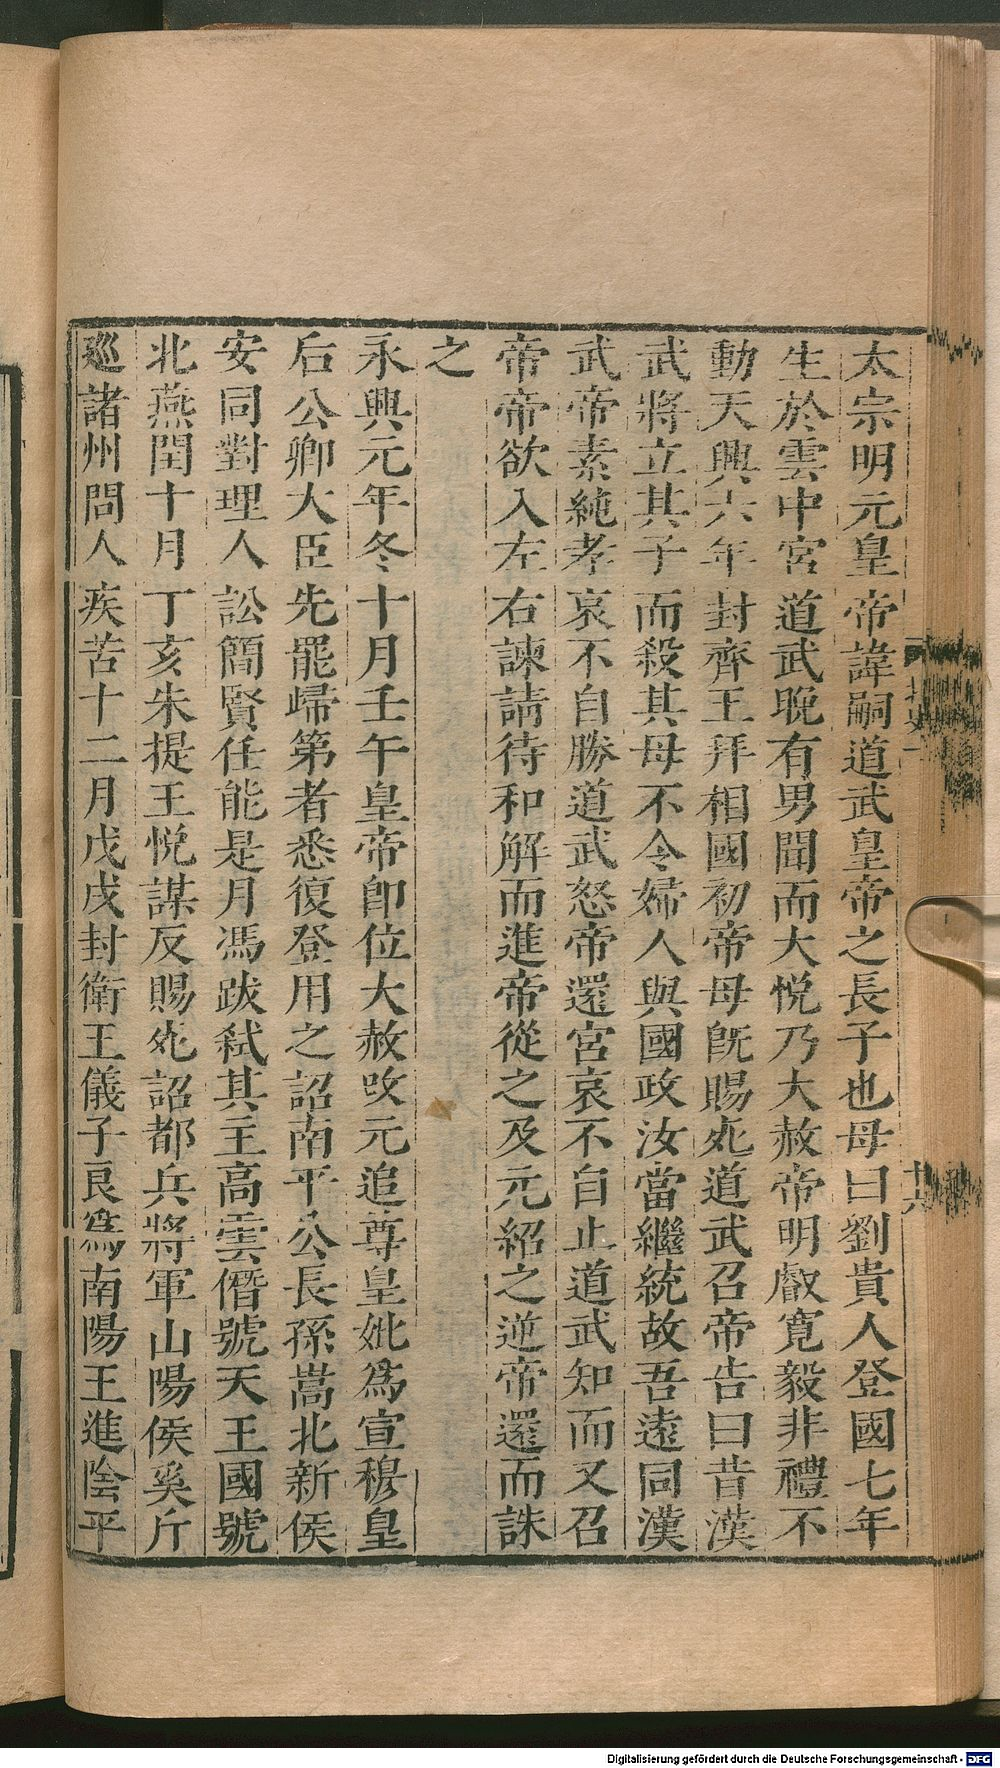 太宗明元皇帝諱嗣道武皇帝之長子也母曰劉貴人登國七年
生於雲中宮道武晚有男聞而大悅乃大赦帝明叡寬毅非禮不
動天興六年封齊王拜相國初帝母旣賜死道武召帝告曰昔漢
武將立其子而殺其母不令婦人與國政汝當繼統故吾遠同漢
武帝素純孝哀不自勝道武怒帝還宮哀不自止道武知而又召
帝帝欲入左右諫請待和解而進帝從之及元紹之逆帝還而誅
之
永興元年冬十月壬午皇帝卽位大赦攺元追尊皇妣爲宣穆皇
后公卿大臣先罷歸第者悉復登用之詔南平公長孫嵩北新侯
安同對理人訟簡賢任能是月馮跋弑其主高雲僭號天王國號
北燕閏十月丁亥朱提王悅謀反賜死詔都兵將軍山陽侯奚斤
巡諸州問人疾苦十二月戊戌封衛王儀子良爲南陽王進陰平
十六
Digitalisierung gefördert durch die Deutsche Forschungsgemeinschaft - DFG